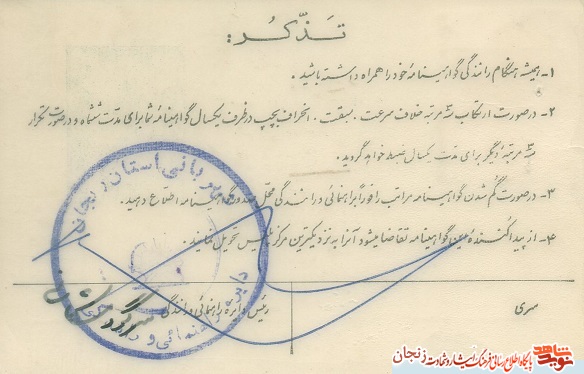 تذکّر:
۱- همیشه هنگام رانندگی گواهینامه خود را همراه داشته باشید.
۲- در صورت ارتکاب سه مرتبه خلاف سرعت. سبقت. انحراف بچپ در ظرف یکسال گواهینامه شما برای مدت ششماه و در صورت تکرار
سه مرتبه دیگر برای مدت یکسال ضبط خواهد گردید.
۳- در صورت گم شدن گواهینامه مراتب را فوراً براهنمائی و رانندگی محل صدور گواهینامه اطلاع دهید.
۴- از پیدا کننده این گواهینامه تقاضا میشود آنرا به نزدیکترین مرکز پلیس تحویل نمایند.
سری
رئیس دایره راهنمائی و رانندگی
شهربانی استان زنجان
دایره راهنمائی و
سرگرد
نوید شاهد
پایگاه اطلاع رسانی فرهنگ ایثار و شهادت زنجان